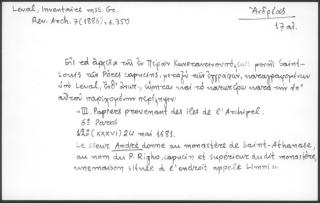 Leval, Inventaire mss. Gr.
Rev. Arch. 7 (1886), σ. 350
Ἀνδρέας
17 αἰ.
Εἰς τὰ ἀρχεῖα τῆς ἐν Πέραν Κωνσταντινουπόλεως μονῆς Saint-
Louis τῶν Pères capucins, μεταξὺ τῶν ἐγγράφων, καταγραφομένων
ὑπὸ Leval, ἔνθ' ἀνωτ., σώζεται καὶ τὸ κατωτέρω κατὰ τὴν ὑπ'
αὐτοῦ παρεχομένην περίληψιν:
«III. Papiers provenant des îles de l'Archipel.
6º Paros
(XXXVI) 24 mai 1681.
Le sieur André donne au monastère de Saint-Athanase,
au nom du P. Righo, capucin et supérieur du dit monastère,
une maison située à l'endroit appelé Limni».